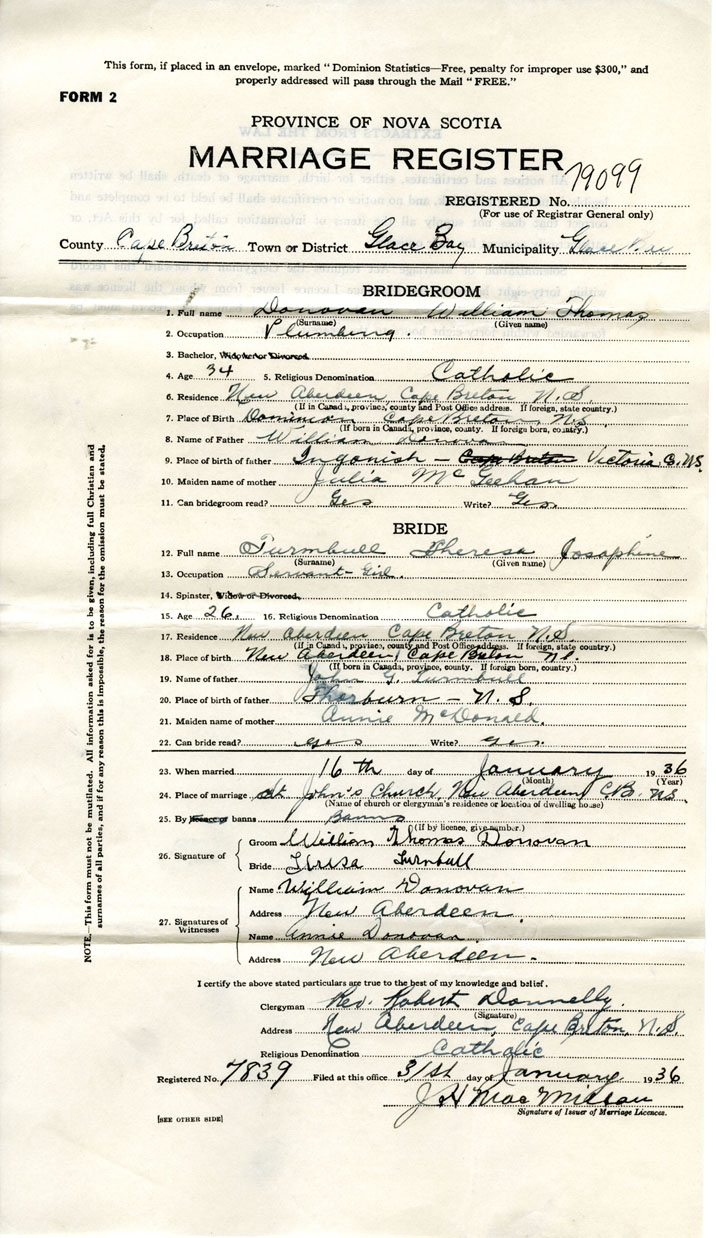 This form, if placed in an envelope, marked "Dominion Statistics—Free, penalty for improper use $300," and
properly addressed will pass through the Mail "FREE."
FORM 2
PROVINCE OF NOVA SCOTIA
MARRIAGE REGISTER
79099
REGISTERED No.
(For use of Registrar General only)
County Cape Breton Town or District Glace Bay Municipality Glace Bay
BRIDEGROOM
1. Full name Donovan William Thomas
(Surname) (Given name)
2. Occupation Plumbing.
3. Bachelor, Widower or Divorced
4. Age 34 5. Religious Denomination Catholic
6. Residence New Aberdeen, Cape Breton N.S.
(If in Canada, province, county and Post Office address. If foreign, state country.)
7. Place of Birth Dominion Cape Breton, N.S.
(If born in Canada, province, county. If foreign born, country.)
8. Name of Father William Donova
9. Place of birth of father Ingonish — Cape Breton Victoria C. N.S.
10. Maiden name of mother Julia McGeehan
11. Can bridegroom read? Yes Write? Yes.
BRIDE
12. Full name Turmbull Theresa Josephine
(Surname) (Given name)
13. Occupation Servant-Girl.
14. Spinster, Widow or Divorced.
15. Age 26. 16. Religious Denomination Catholic
17. Residence New Aberdeen, Cape Breton N.S.
(If in Canada, province, county and Post Office address. If foreign, state country.)
18. Place of birth New Aberdeen, Cape Breton N.S.
(If born in Canada, province, county. If foreign born, country.)
19. Name of father John G. Turmbull
20. Place of birth of father Thorburn — N.S.
21. Maiden name of mother Annie McDonald.
22. Can bride read? yes Write? yes.
23. When married 16th day of January 1936
(Month) (Year)
24. Place of marriage St. John's Church, New Aberdeen, C.B. N.S.
(Name of church or clergyman's residence or location of dwelling house)
25. By licence or banns Banns
(If by licence, give number.)
26. Signature of
Groom William Thomas Donovan
Bride Turnbull
27. Signatures of Witnesses
Name William Donovan
Address New Aberdeen.
Name Annie Donovan
Address New Aberdeen.
I certify the above stated particulars are true to the best of my knowledge and belief.
Clergyman Rev. Robert Donnelly.
(Signature)
Address New Aberdeen, Cape Breton, N.S.
Religious Denomination Catholic
Registered No. 7839 Filed at this office 31st day of January 1936
J H MacMillan
Signature of Issuer of Marriage Licences.
[SEE OTHER SIDE]
NOTE.—This form must not be mutilated. All information asked for is to be given, including full Christian and
surnames of all parties, and if for any reason this is impossible, the reason for the omission must be stated.